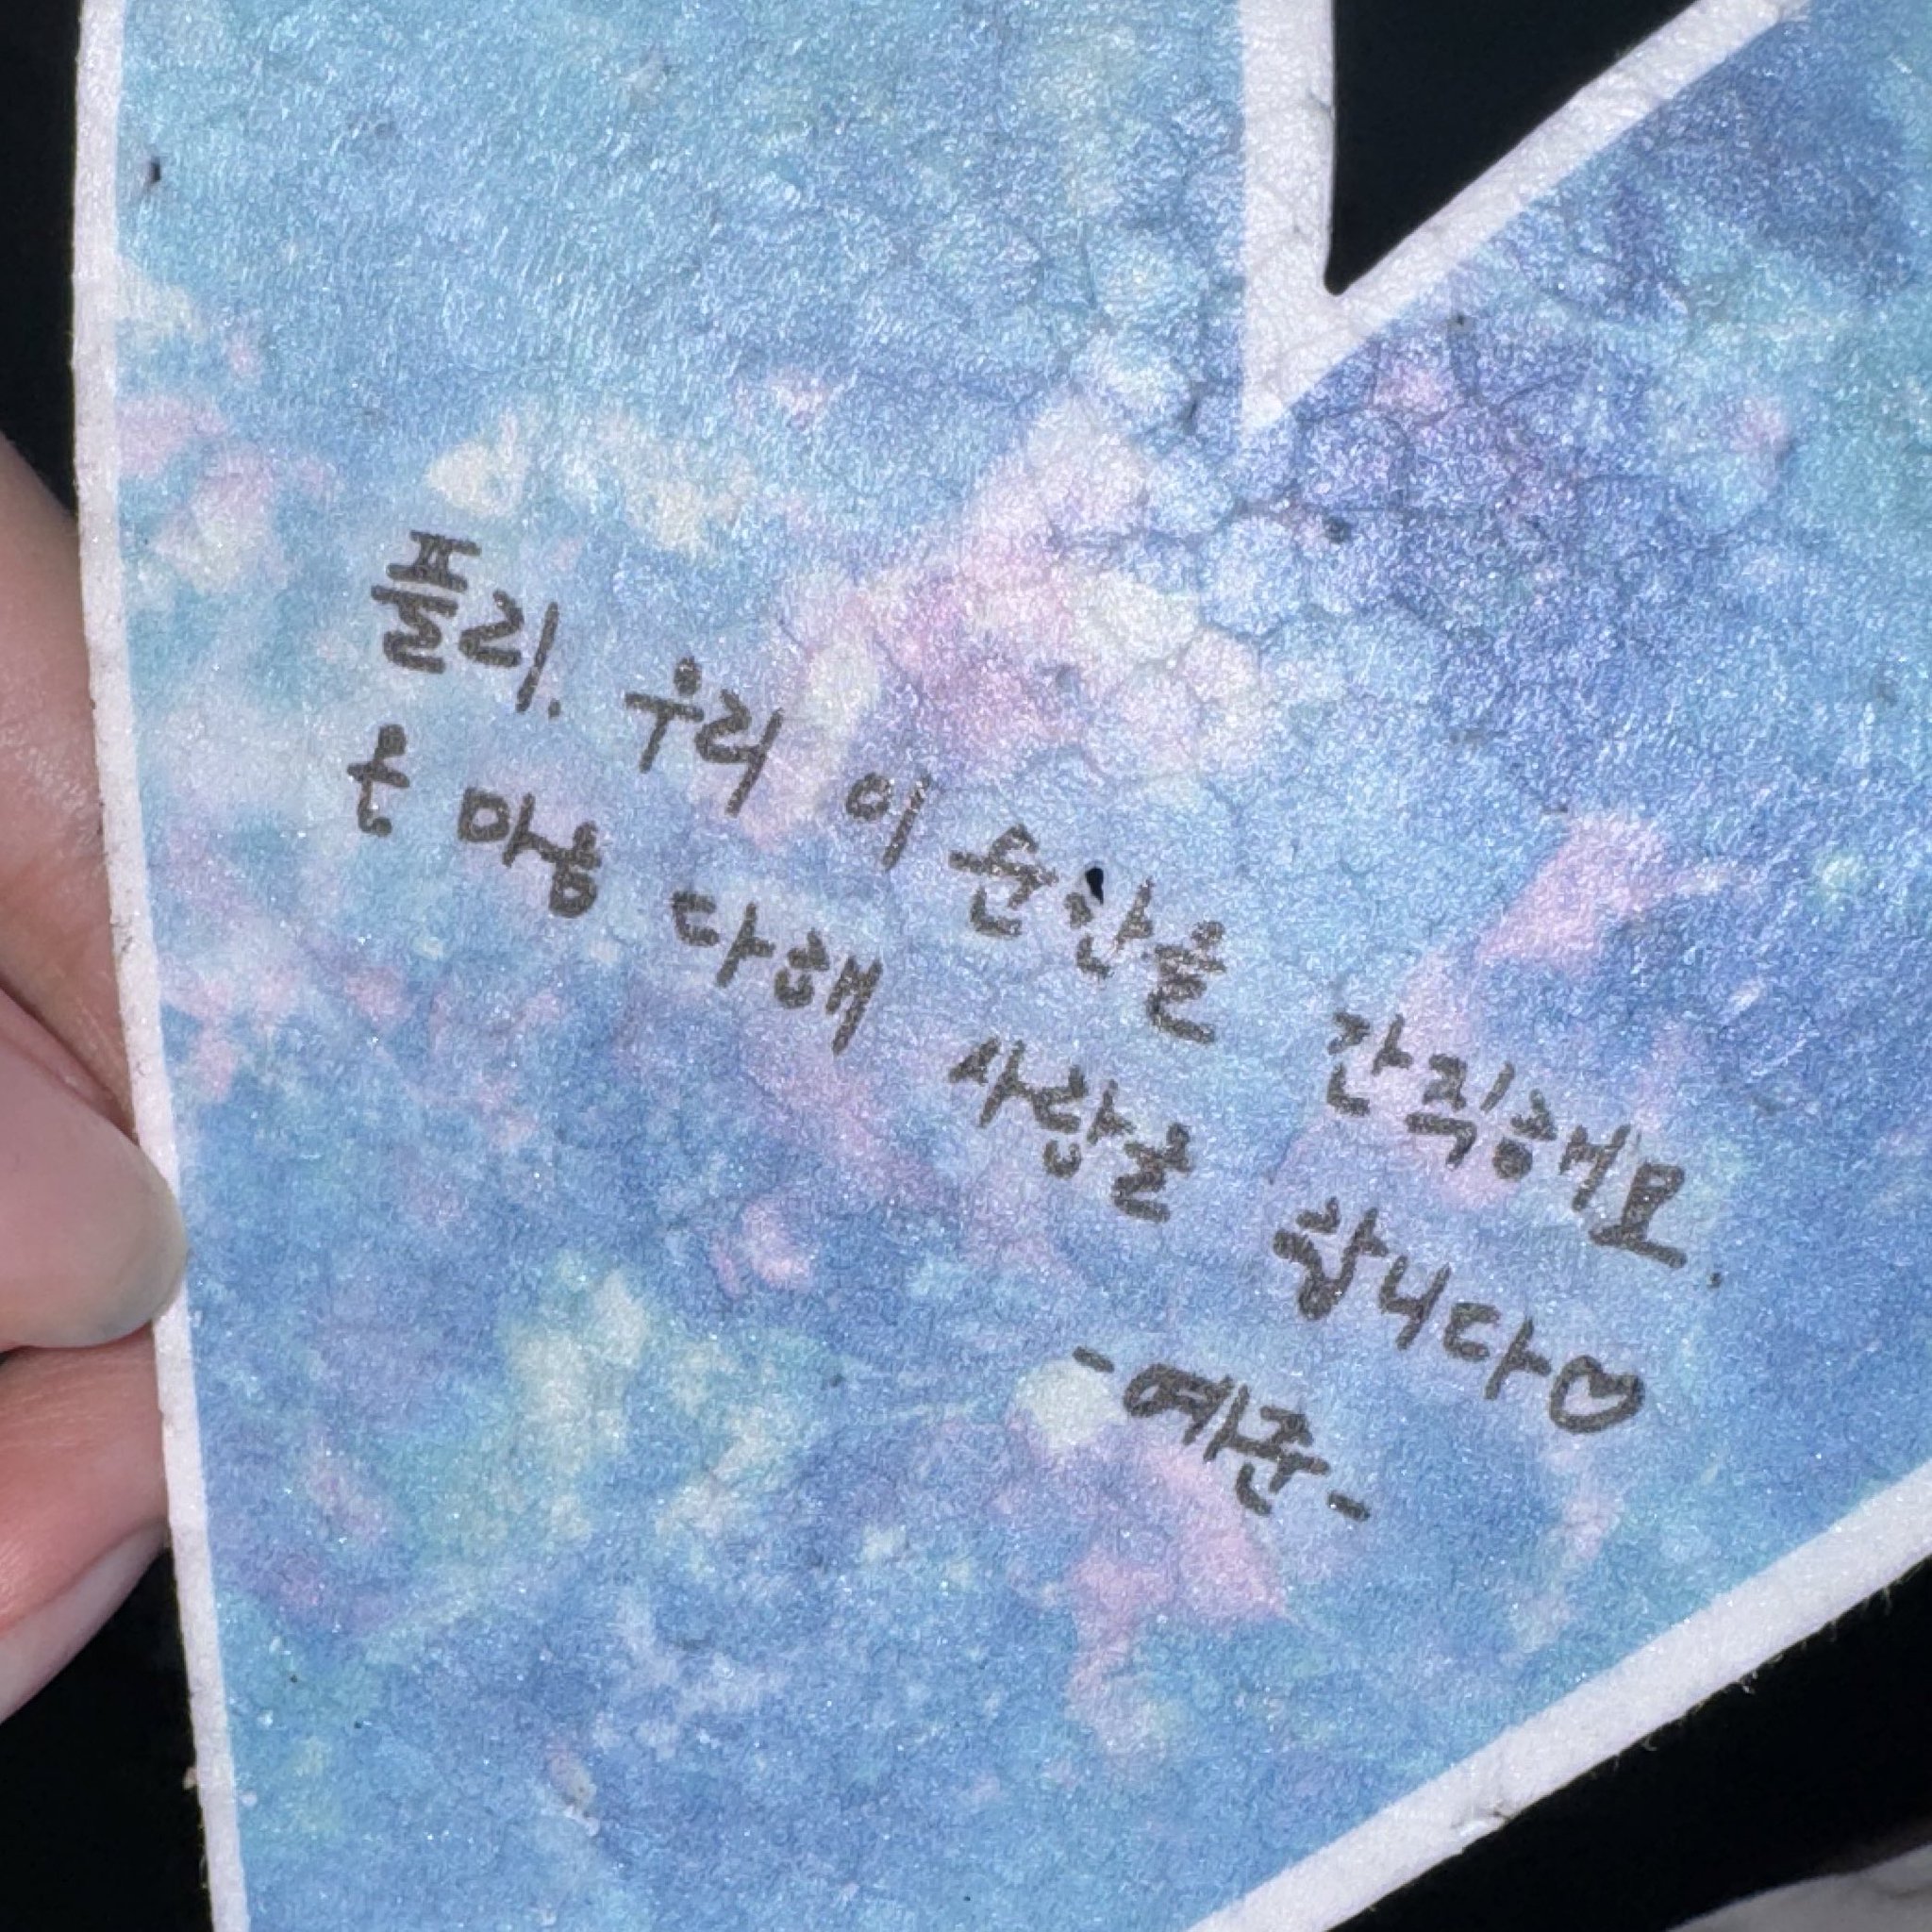 플리. 우리 이 순간을 간직해요.
온 마음 다해 사랑을 합니다♡
-예준-